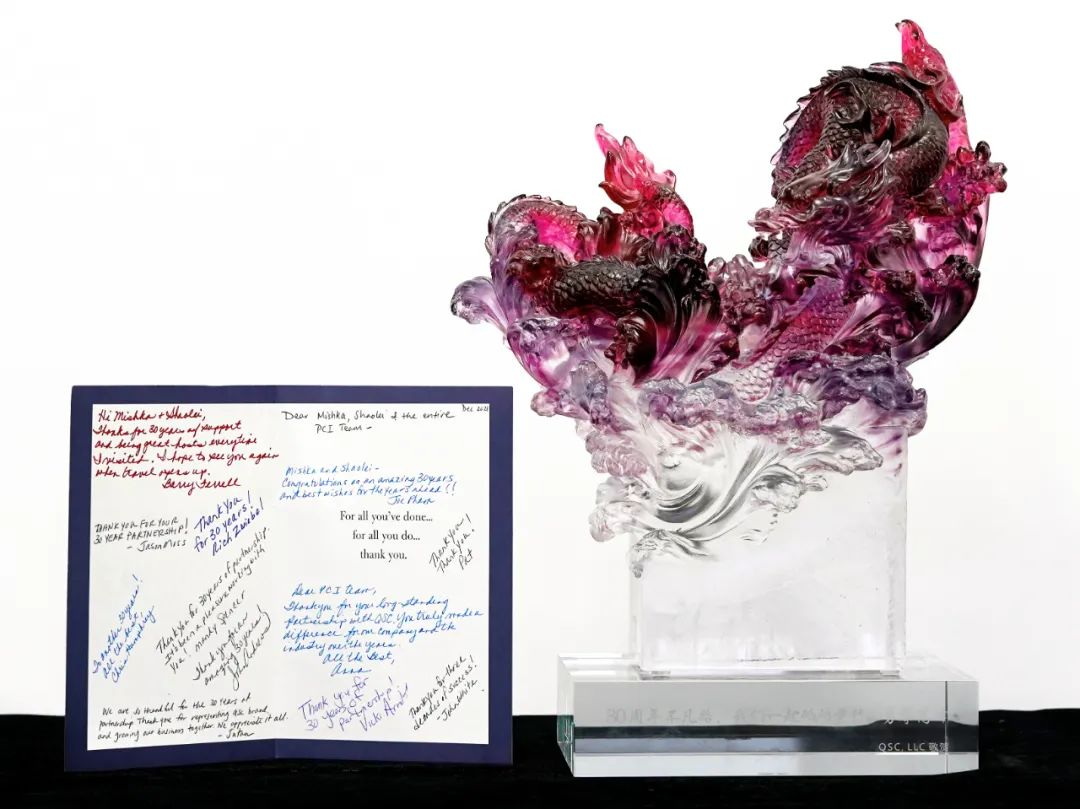 Hi Mishka + Shaolei,
Thanks for 30 years w/ support
and being great hosts everytime
I visited. I hope to see you again
when travel opens up.
Barry Ferrell
THANK YOU FOR YOUR
30 YEAR PARTNERSHIP!
- JASON MOSS
Thank You
for 30 years!
Rich Zwiebel
To another 30 years!
All the best,
Chris Humphrey
Thank You for 30 years of partnership.
It's been a pleasure working with
you!
Thank you for an
amazing 30 years!
John
We are so thankful for the 30 years of
partnership. Thank you for representing QSC brand
and growing our business together. We appreciate it all.
- Jatan
Dec 2021
Dear Mishka, Shaolei & the entire
PCI Team -
Mishka and Shaolei -
Congratulations on an amazing 30 years
and best wishes for the years ahead!!
Joe Pham
For all you've done...
for all you do...
thank you.
Thank you!
Thank you!
Pat
Dear PCI team,
Thank you for your long-standing
partnership with QSC. You truly made a
difference for our company and the
industry over the years.
All the Best,
Anna
Thank you for
30 years of
partnership!
Thank you for three
decades of success!
- John White
30周年不凡路，
QSC, LLC 敬贺